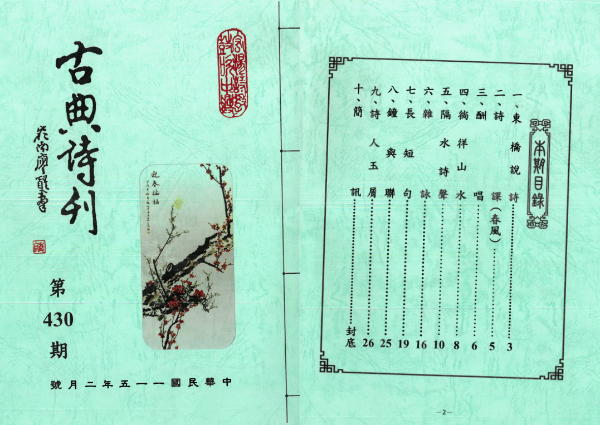 古典詩刊
第
430
期
迎春納福
中華民國一一五年二月號
本期目錄
一、東橋說詩……3
二、詩課(春風)……5
三、酬唱……6
四、徜徉山水……8
五、隔水詩聲……10
六、雜詠……16
七、長短句……19
八、鐘與聯……25
九、詩人玉屑……26
十、簡訊……封底
—2—